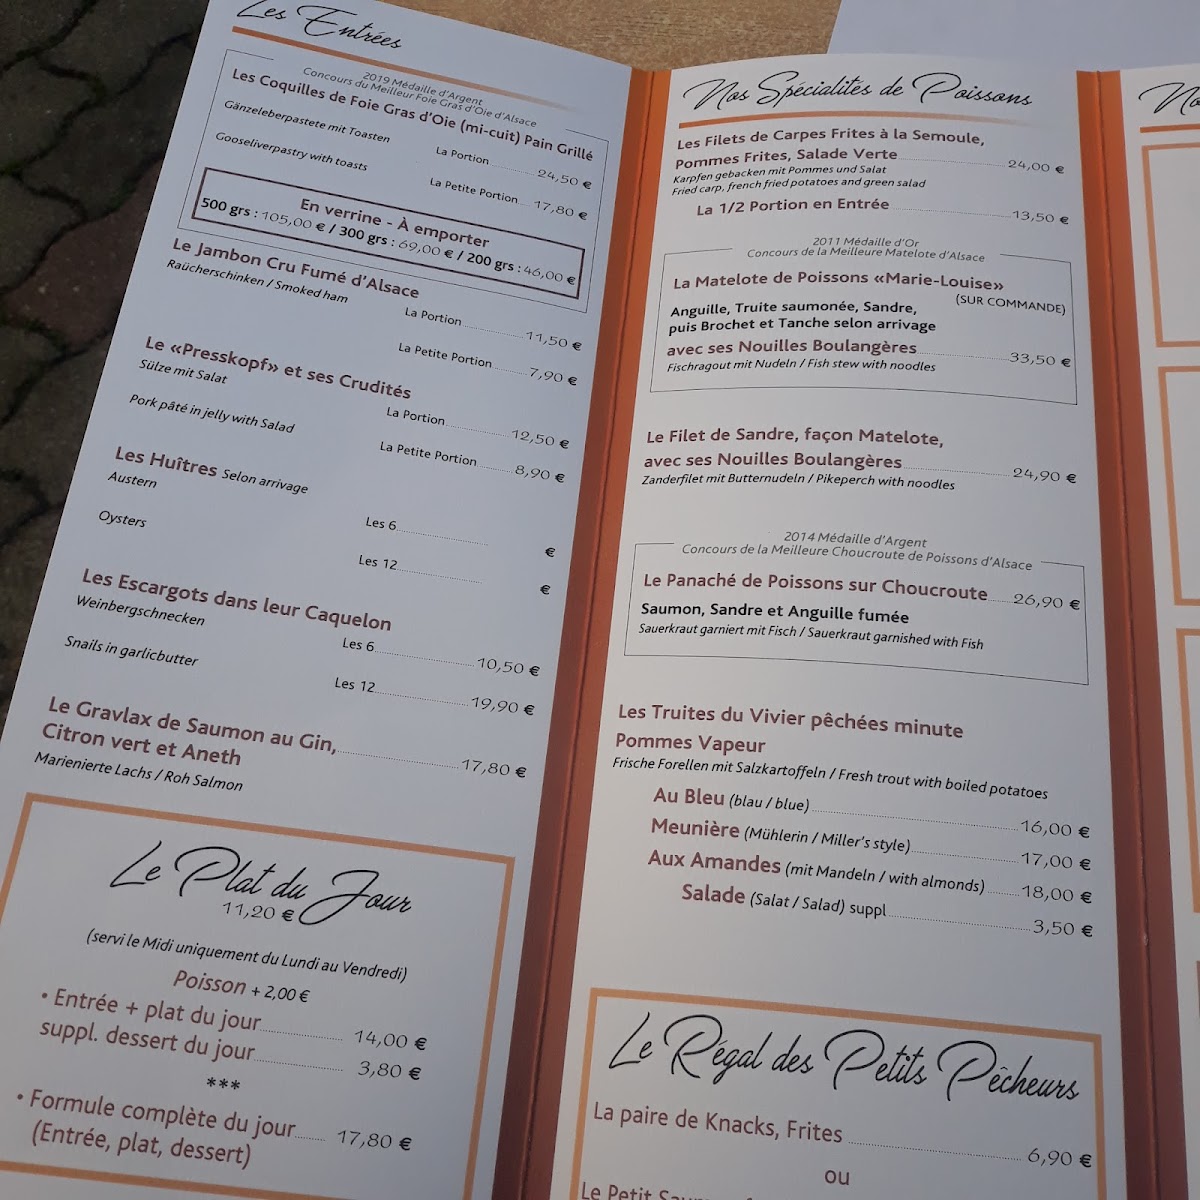 Les Entrées
2019 Médaille d'Argent
Concours du Meilleur Foie Gras d'Oie d'Alsace
Les Coquilles de Foie Gras d'Oie (mi-cuit) Pain Grillé
Gänzeleberpastete mit Toasten
La Portion 24,50 €
Gooseliverpastry with toasts
La Petite Portion 17,80 €
En verrine - À emporter
500 grs : 105,00 € / 300 grs : 69,00 € / 200 grs : 46,00 €
Le Jambon Cru Fumé d'Alsace
Raücherschinken / Smoked ham
La Portion 11,50 €
La Petite Portion 7,90 €
Le «Presskopf» et ses Crudités
Sülze mit Salat
La Portion 12,50 €
Pork pâté in jelly with Salad
La Petite Portion 8,90 €
Les Huîtres Selon arrivage
Austern
Les 6 €
Oysters
Les 12 €
Les Escargots dans leur Caquelon
Weinbergschnecken
Les 6 10,50 €
Snails in garlicbutter
Les 12 19,90 €
Le Gravlax de Saumon au Gin,
Citron vert et Aneth 17,80 €
Marienierte Lachs / Roh Salmon
Le Plat du Jour
11,20 €
(servi le Midi uniquement du Lundi au Vendredi)
Poisson + 2,00 €
• Entrée + plat du jour 14,00 €
suppl. dessert du jour 3,80 €
***
• Formule complète du jour 17,80 €
(Entrée, plat, dessert)
Nos Spécialités de Poissons
Les Filets de Carpes Frites à la Semoule,
Pommes Frites, Salade Verte 24,00 €
Karpfen gebacken mit Pommes und Salat
Fried carp, french fried potatoes and green salad
La 1/2 Portion en Entrée 13,50 €
2011 Médaille d'Or
Concours de la Meilleure Matelote d'Alsace
La Matelote de Poissons «Marie-Louise»
(SUR COMMANDE)
Anguille, Truite saumonée, Sandre,
puis Brochet et Tanche selon arrivage
avec ses Nouilles Boulangères 33,50 €
Fischragout mit Nudeln / Fish stew with noodles
Le Filet de Sandre, façon Matelote,
avec ses Nouilles Boulangères 24,90 €
Zanderfilet mit Butternudeln / Pikeperch with noodles
2014 Médaille d'Argent
Concours de la Meilleure Choucroute de Poissons d'Alsace
Le Panaché de Poissons sur Choucroute 26,90 €
Saumon, Sandre et Anguille fumée
Sauerkraut garniert mit Fisch / Sauerkraut garnished with Fish
Les Truites du Vivier pêchées minute
Pommes Vapeur
Frische Forellen mit Salzkartoffeln / Fresh trout with boiled potatoes
Au Bleu (blau / blue) 16,00 €
Meunière (Mühlerin / Miller's style) 17,00 €
Aux Amandes (mit Mandeln / with almonds) 18,00 €
Salade (Salat / Salad) suppl 3,50 €
Le Régal des Petits Pêcheurs
La paire de Knacks, Frites 6,90 €
ou
Le Petit